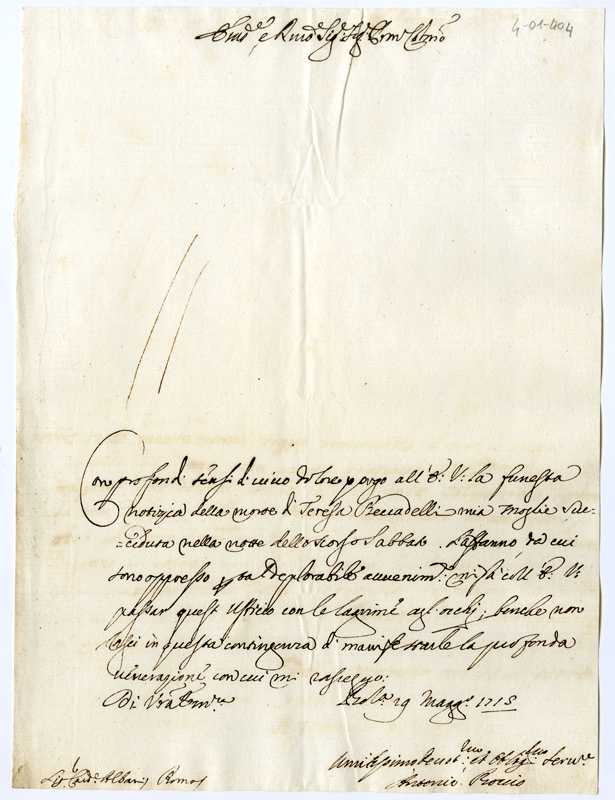 4-01-404
Em.e e Rmo Sig. Sig. Pron. Colmo
Con profondi sensi di vivo dolore porgo all'E: V: la funesta
notizia della morte di Teresa Beccadelli mia moglie de-
=ceduta nella notte dello scorso Sabbato. L'affanno, da cui
sono oppresso p tal deplorabile avvenim.to mi fà coll'E: V:
passar quest'Ufficio con le lagrime agl'occhi; benche non
lasci in questa contingenza di manifestarle la profonda
venerazione con cui mi rassegno:
Di Vra Em.za 19 Magg.o 1715
Umilissimo Devot.mo et Oblig.mo Serv.e
Antonio
Sig. Card. Albani Roma